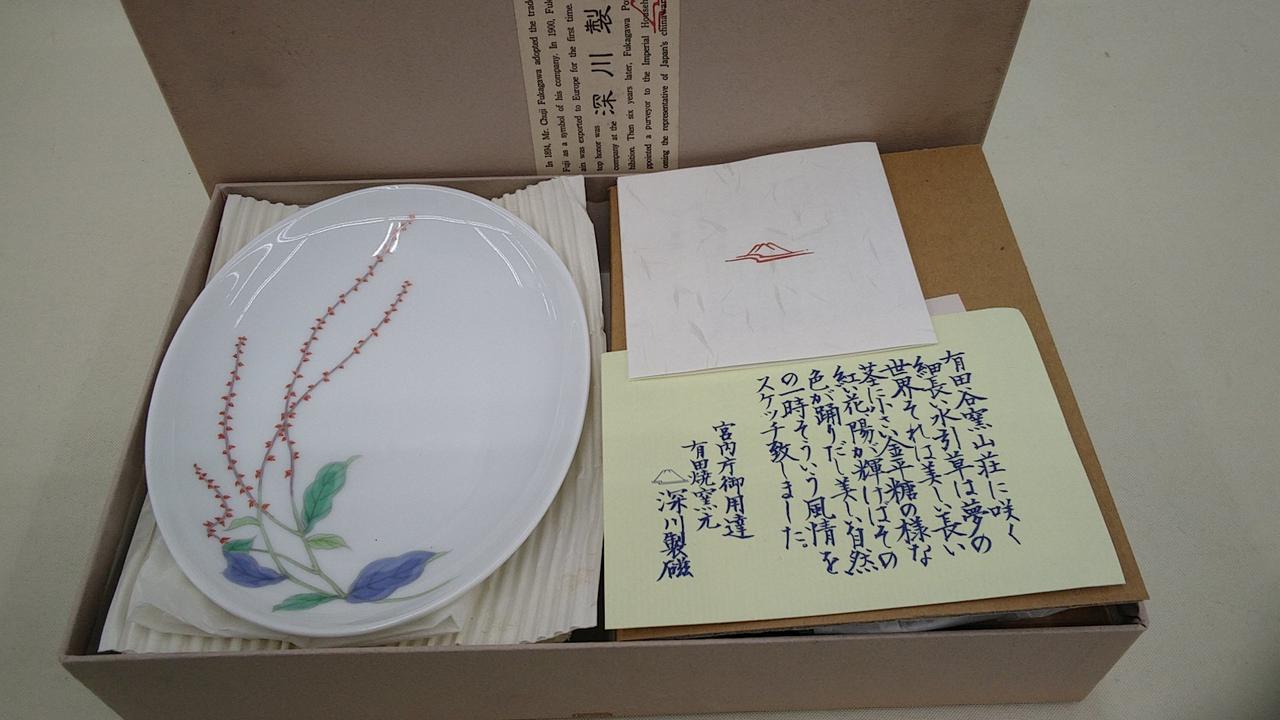 In 1894, Mr. Chuji Fukagawa adopted the trad
Fuji as a symbol of his company. In 1900, Fuk
ain was exported to Europe for the first time.
top honor was
company at the
深川製
hibition. Then six years later, Fukagawa Po
ppointed a purveyor to the Imperial Househ
oming the representative of Japan's chinaware
有田谷窯山荘に咲く
細長い水引草は夢の
世界それは美しい長い
茎に小さい金平糖の様な
紅い花、陽が輝けばその
色が踊りだし美しい自然
の一時そういう風情を
スケッチ致しました。
宮内庁御用達
有田焼窯元
深川製磁